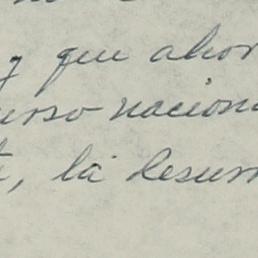 y que ahor
urso naciona
, la resum